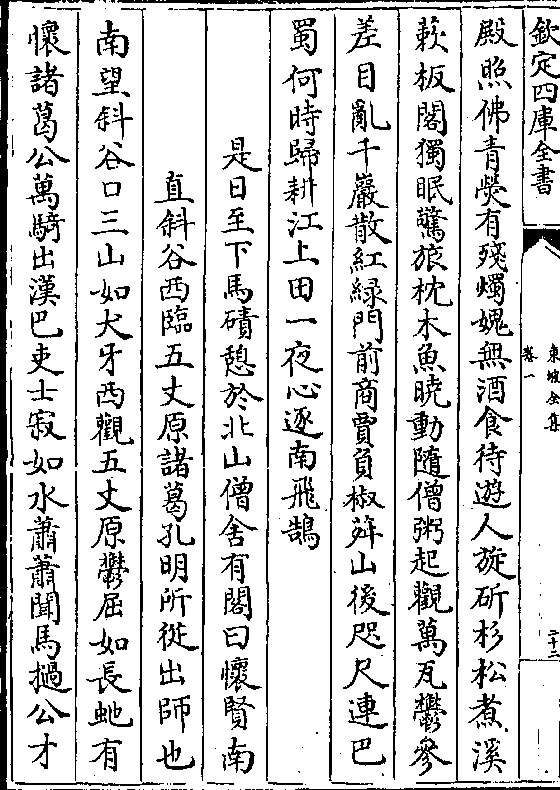 欽定四庫全書
東坡全集
卷一
二十二
殿照佛青熒有殘燭媿無酒食待遊人旋斫杉松煮溪
蔌板閣獨眠驚旅枕木魚曉動隨僧粥起觀萬瓦鬱參
差目亂千巖散紅綠門前商賈負椒荈山後咫尺連巴
蜀何時歸耕江上田一夜心逐南飛鵠
是日至下馬磧憩於北山僧舍有閣曰懷賢南
直斜谷西臨五丈原諸葛孔明所從出師也
南望斜谷口三山如犬牙西觀五丈原鬱屈如長虵有
懷諸葛公萬騎出漢巴吏士寂如水蕭蕭聞馬撾公才